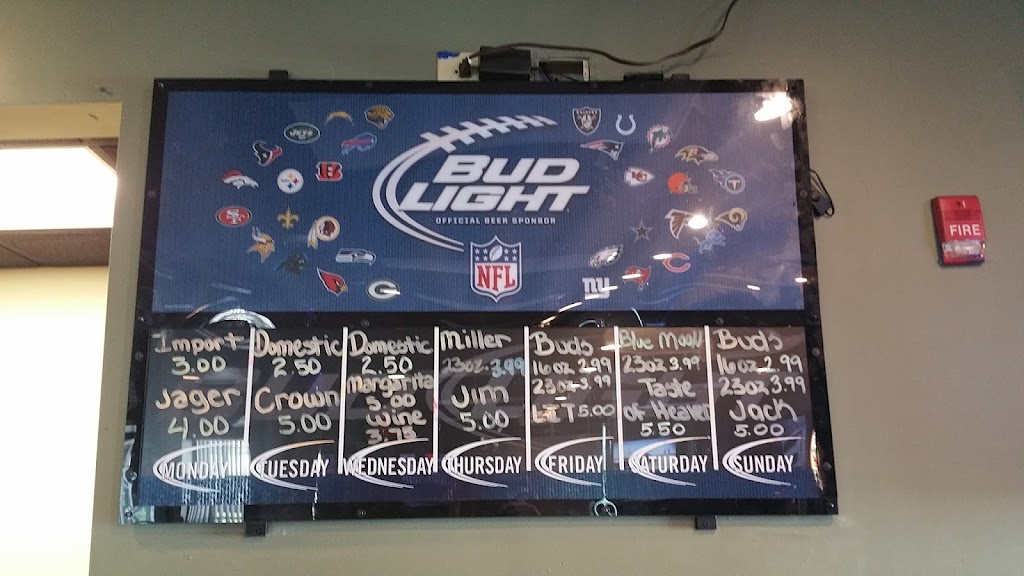 BUD
LIGHT
OFFICIAL BEER SPONSOR
NFL
JETS
RAIDERS
ny
G
FIRE
Import
3.00
Jager
4.00
MONDAY
Domestic
2.50
Crown
5.00
TUESDAY
Domestic
2.50
Margarita
5.00
Wine
3.75
WEDNESDAY
Miller
23oz. 3.99
Jim
5.00
THURSDAY
Buds
16oz 2.99
23oz 3.99
LIT 5.00
FRIDAY
Blue Moon
23oz 3.99
Taste
of Heaven
5.50
SATURDAY
Buds
16oz 2.99
23oz 3.99
Jack
5.00
SUNDAY